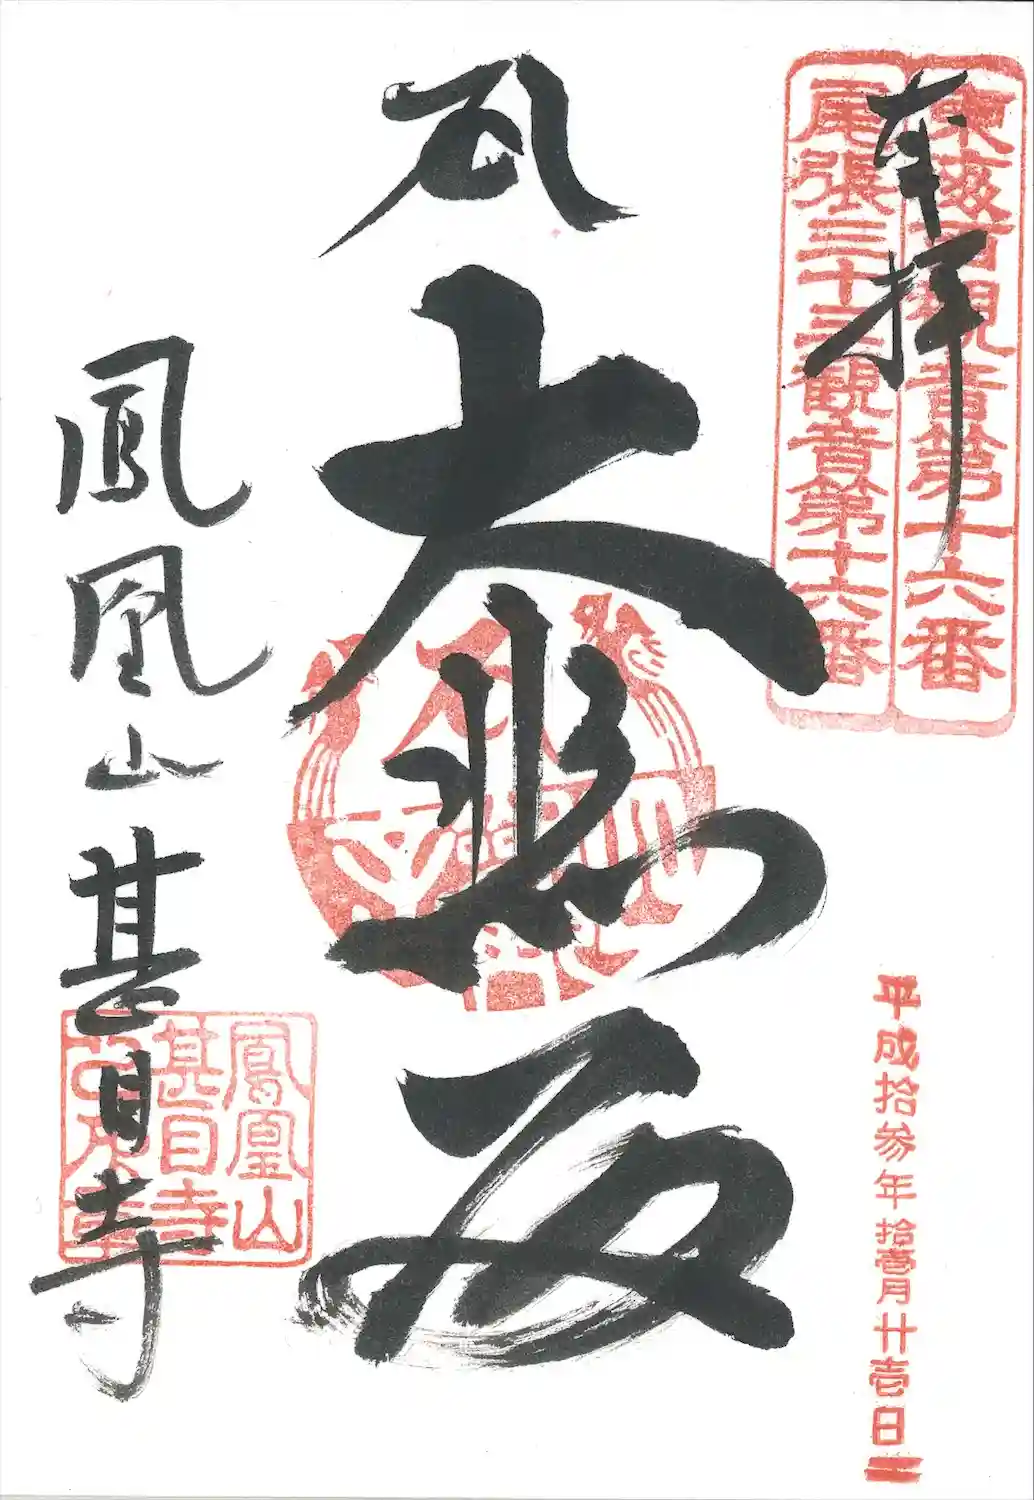 奉拝
東海百観音第十六番
尾張三十三観音第十六番
大悲殿
鳳凰山甚目寺
鳳凰山
甚目寺
平成拾参年拾壹月廿壱日